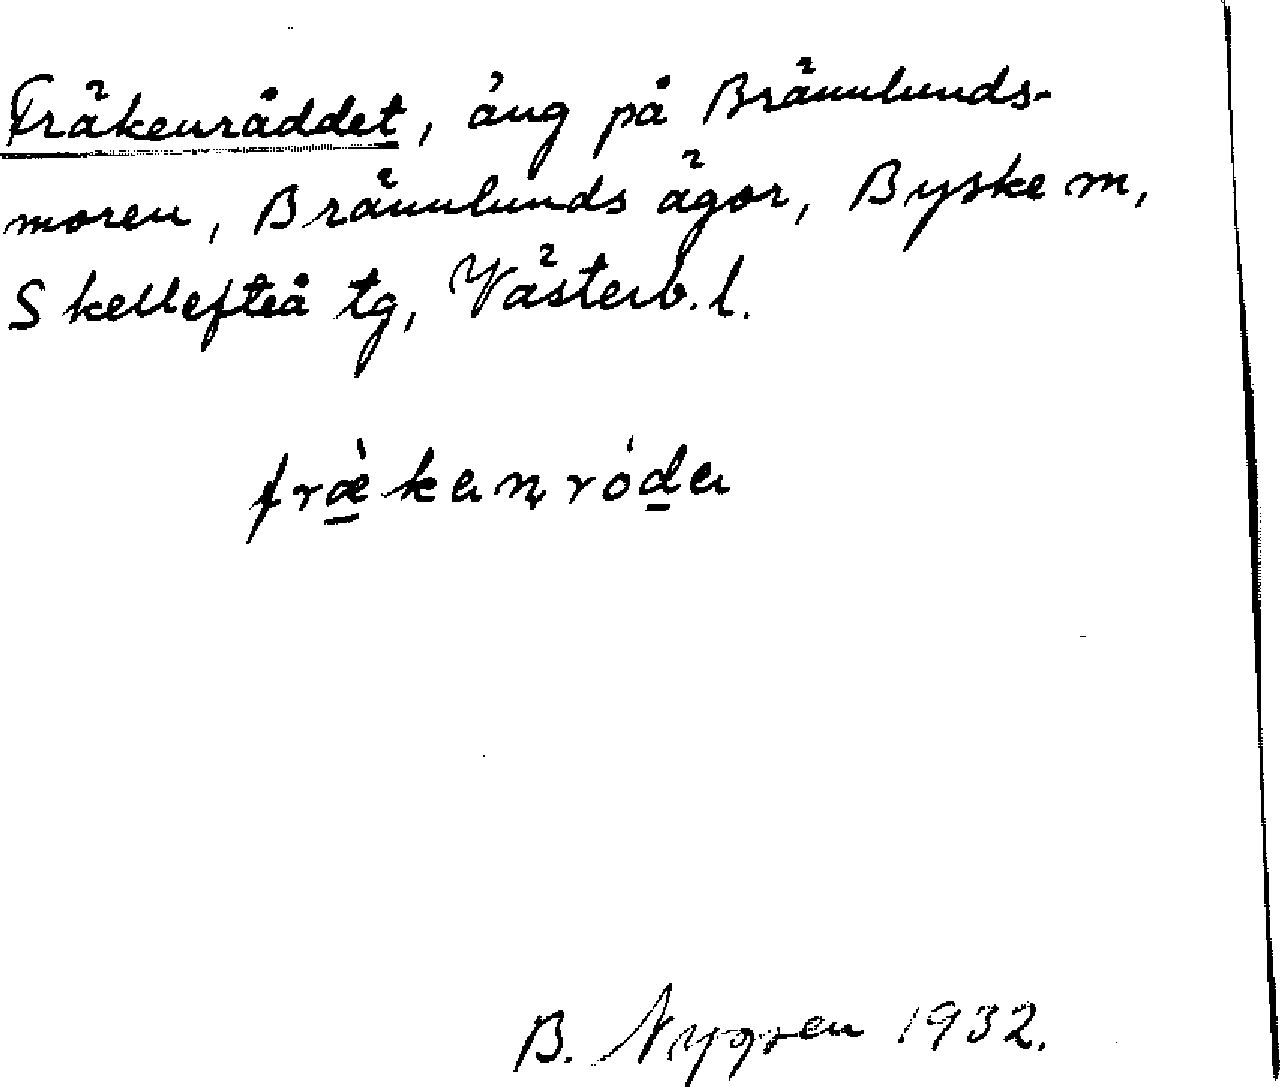 Fräkenråddet, äng på Brännlunds-
moren, Brännlunds ägor, Byske m,
Skellefteå tg, Västerb. l.
fræ̀kenródα
B. Nygren 1932.